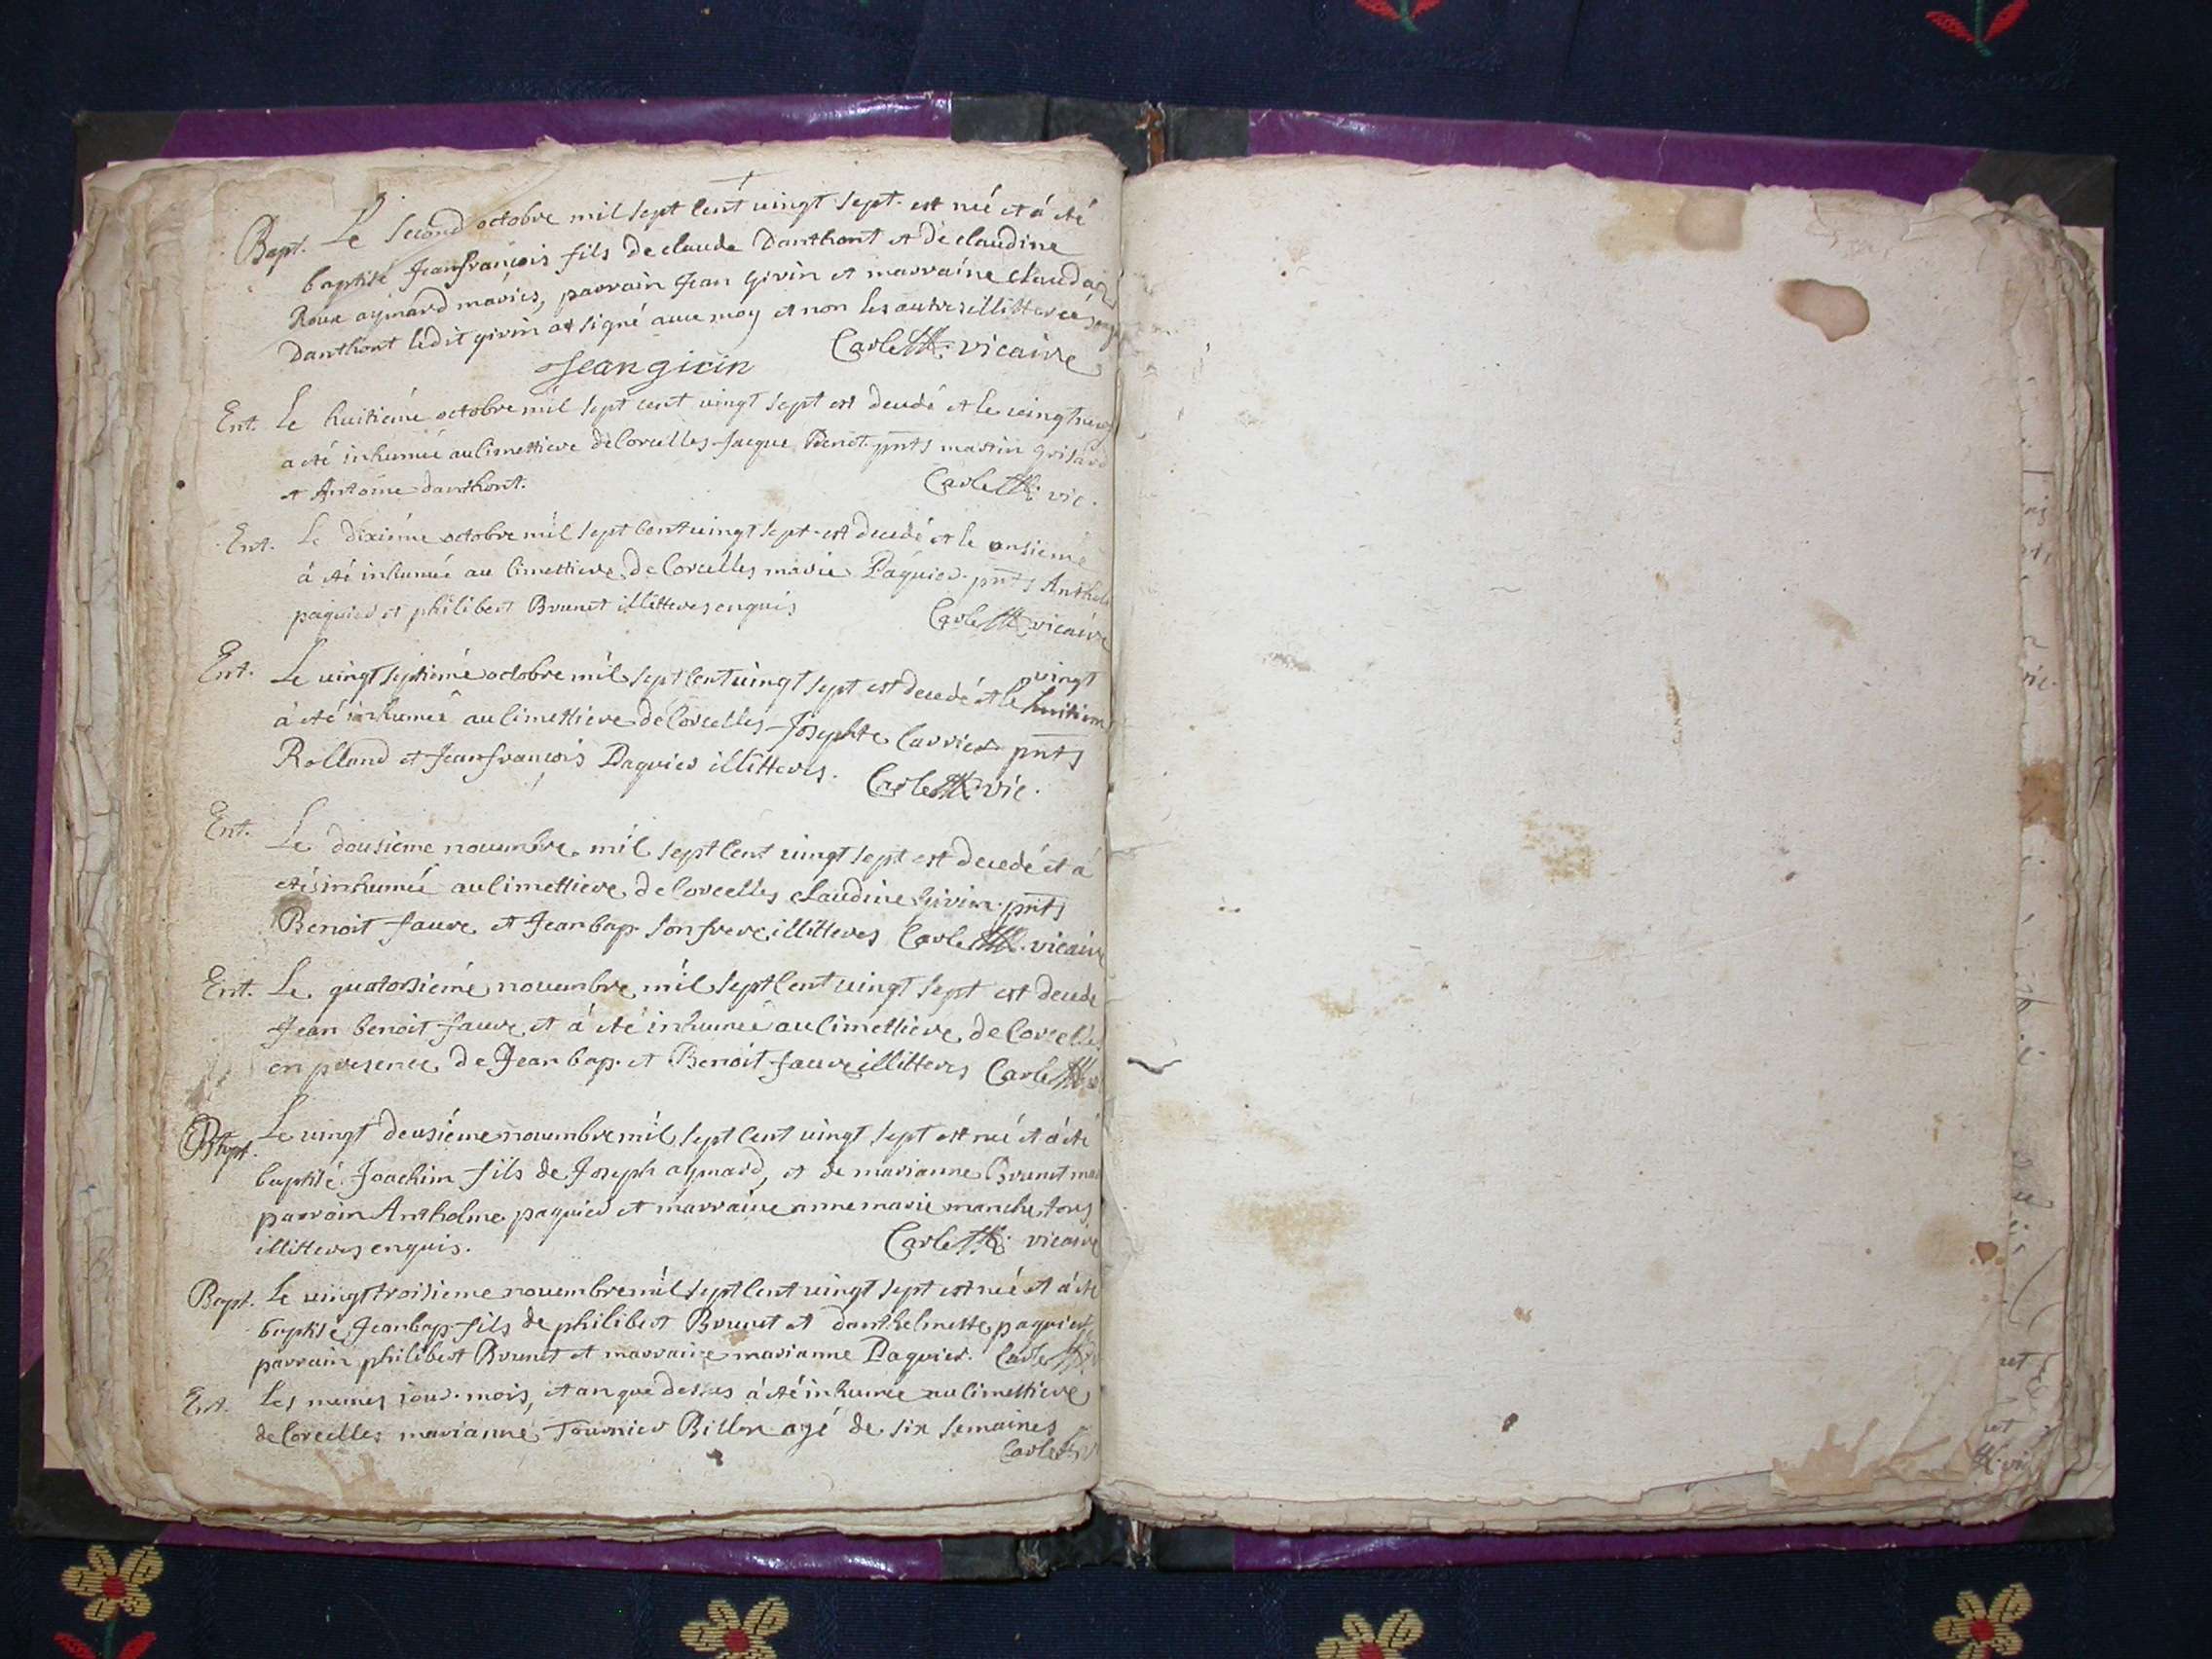 Bapt. Le second octobre mil sept cent vingt sept est né et á été
baptisé Jean françois fils de claude Danthont et de claudine
Roux aymard mariés, parrain Jean Girin et marraine clauda
Danthont ledit girin at signé avec moy et non les autres illitteres
Jean girin Carlettti vicaire
Ent. Le huitiéme octobre mil sept cent vingt sept est decedé et le
a été inhumée au cimettiere de Corcelles Jacque pnts martin grisard
et Antoine danthont. Carlettti vic.
Ent. Le dixiéme octobre mil sept cent vingt sept est decedé et le onsieme
á été inhumée au cimettiere de Corcelles marie Paquier pnts Anthel
paquier et philibert Brunet illitteres enquis Carlettti vicaire
Ent. Le vingt septiéme octobre mil sept cent vingt sept est decedé et le vingt huitiem
á été inhumée au cimettiere de Corcelles Josephte Carrier pnts
Rolland et Jean françois Paquier illitteres. Carlettti vic.
Ent. Le dousieme novembre mil sept cent vingt sept est decedé et á
été inhumée au cimettiere de Corcelles claudine Girin pnts
Benoit faure et Jean bap. son frere illitteres Carlettti vicaire
Ent. Le quatorsiéme novembre mil sept cent vingt sept est decede
Jean benoit faure et á été inhumée au cimettiere de Corcelles
en presence de Jean bap. et Benoit faure illitteres Carlettti
Bapt. Le vingt deusiéme novembre mil sept cent vingt sept est né et á été
baptisé Joachim fils de Joseph aymard, et de marianne Brunet ma
parrain Antholme paquier et marraine anne marie manche tous
illitteres enquis. Carlettti vicaire
Bapt. Le vingt troisieme novembre mil sept cent vingt sept est né et á été
baptisé Jean bap. fils de philibert Brunet et danthelmette paquier
parrain philibert Brunet et marraine marianne Paquier. Carlettti
Ent. Les memes jour mois, et an que dessus á été inhumée au cimettiere
de Corcelles marianne Tournier Billon agé de six semaines
Carlettti